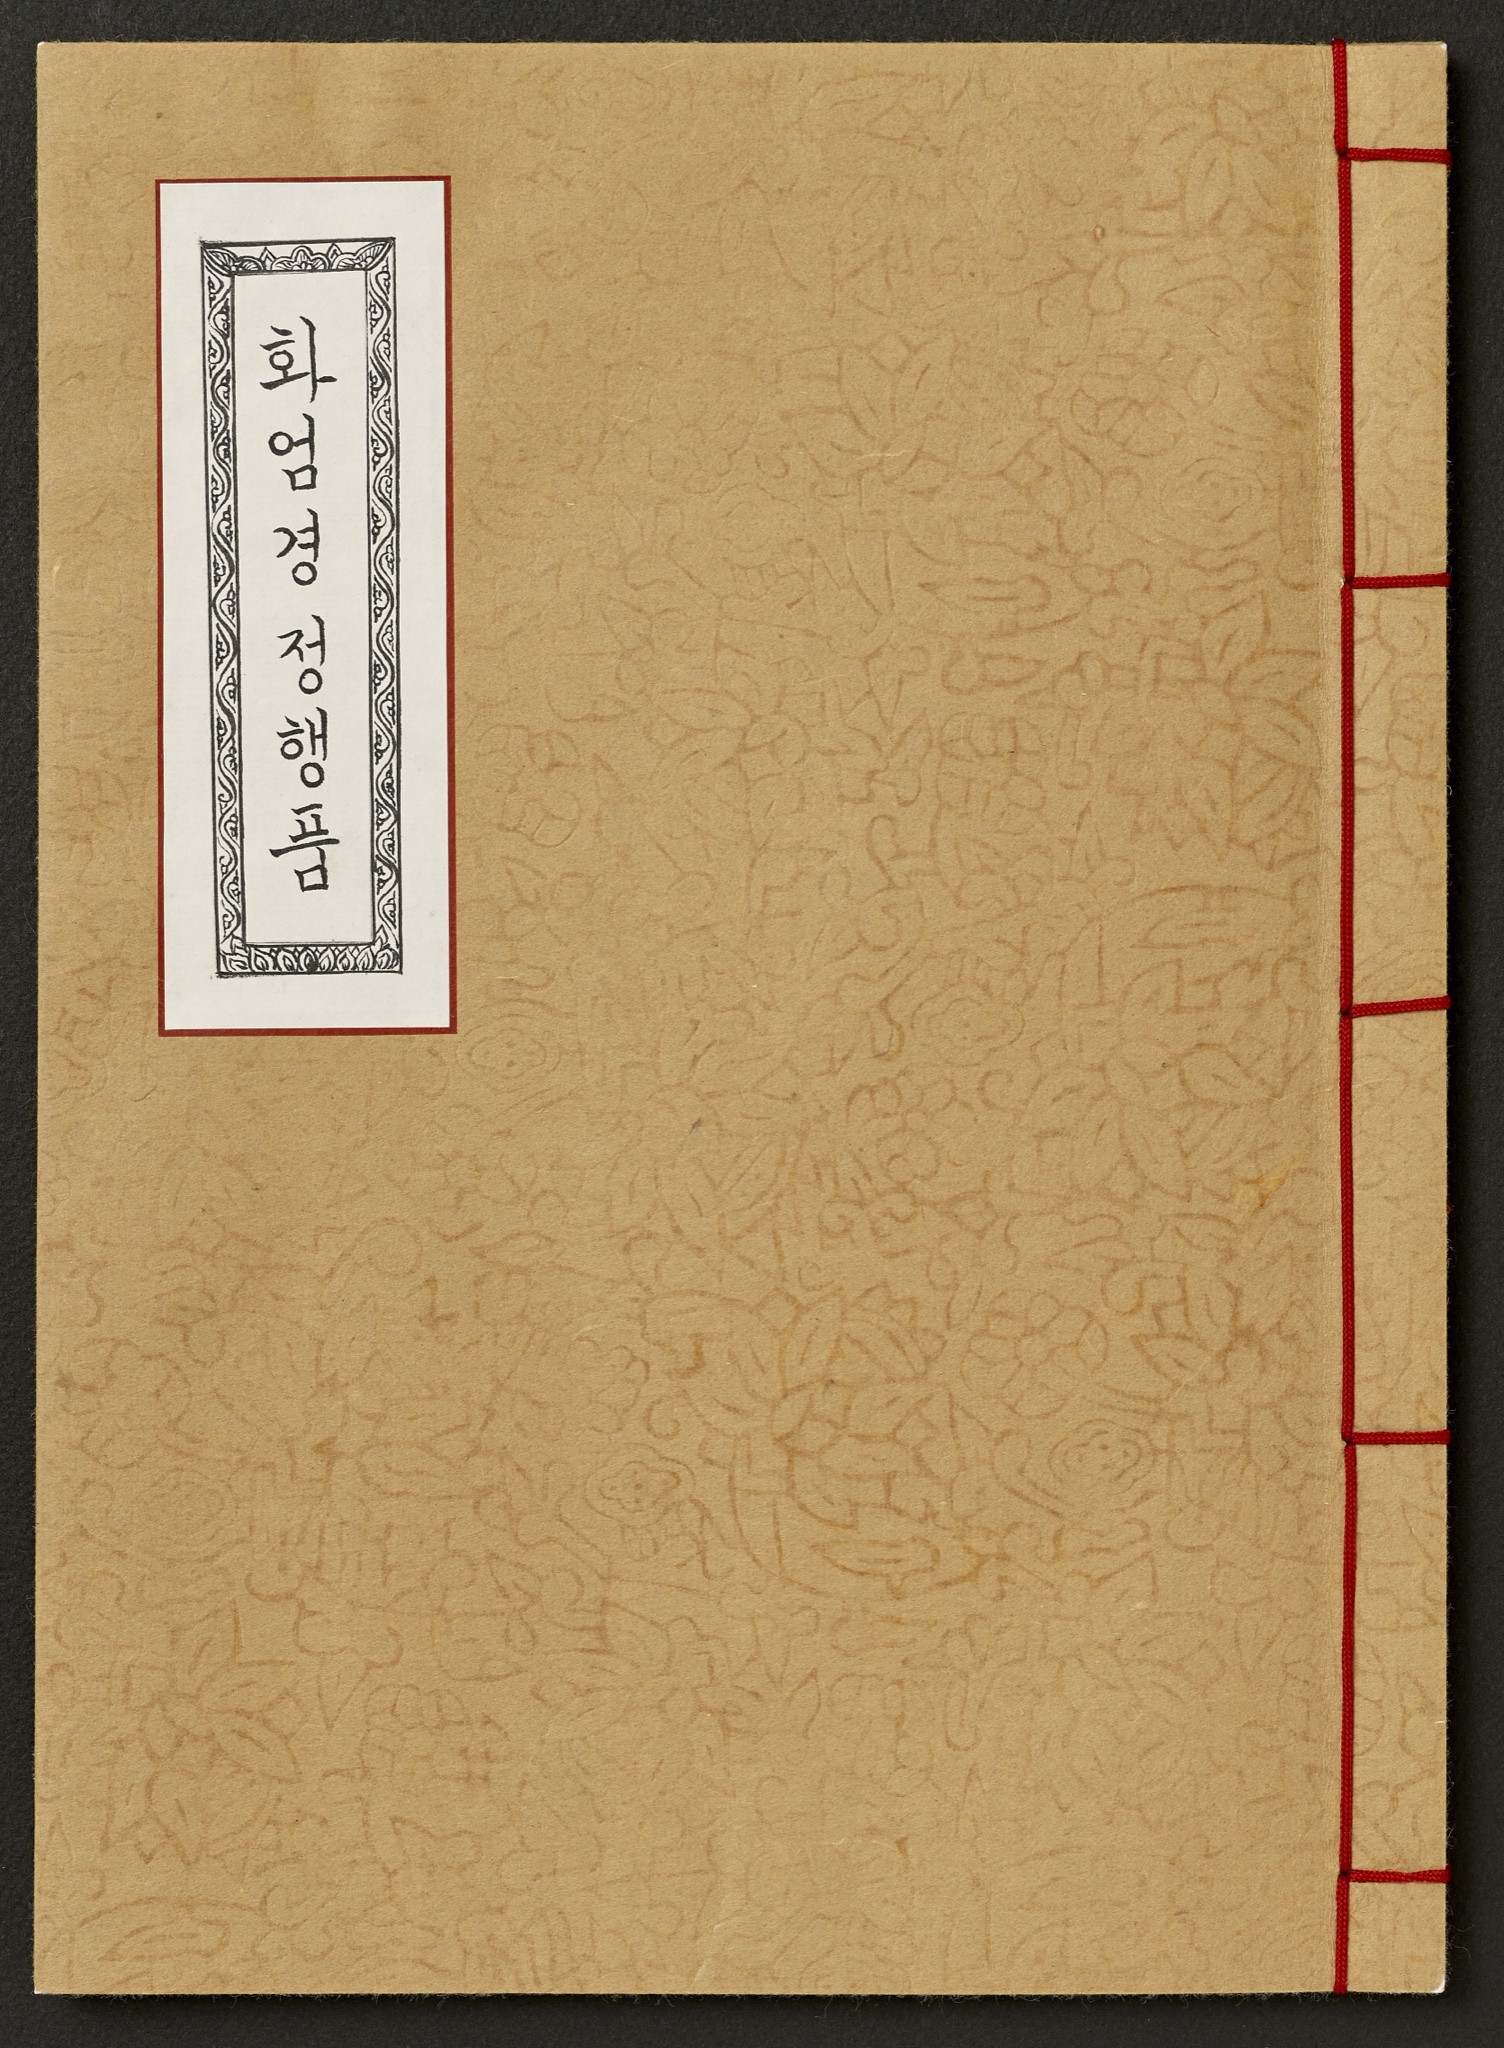 화엄경정행품